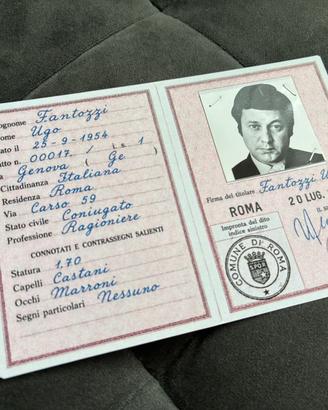 ognome Fantozzi
ome Ugo
ato il 25-9-1954
tto n. 00017. / I.s. 1
a Genova ( Ge )
Cittadinanza Italiana
Residenza Roma
Via Carso 59
Stato civile Coniugato
Professione Ragioniere
CONNOTATI E CONTRASSEGNI SALIENTI
Statura 1,70
Capelli Castani
Occhi Marroni
Segni particolari Nessuno
Firma del titolare Fantozzi U
ROMA 20 LUG.
Impronta del dito
indice sinistro
IL S
COMUNE DI ROMA
SPQR